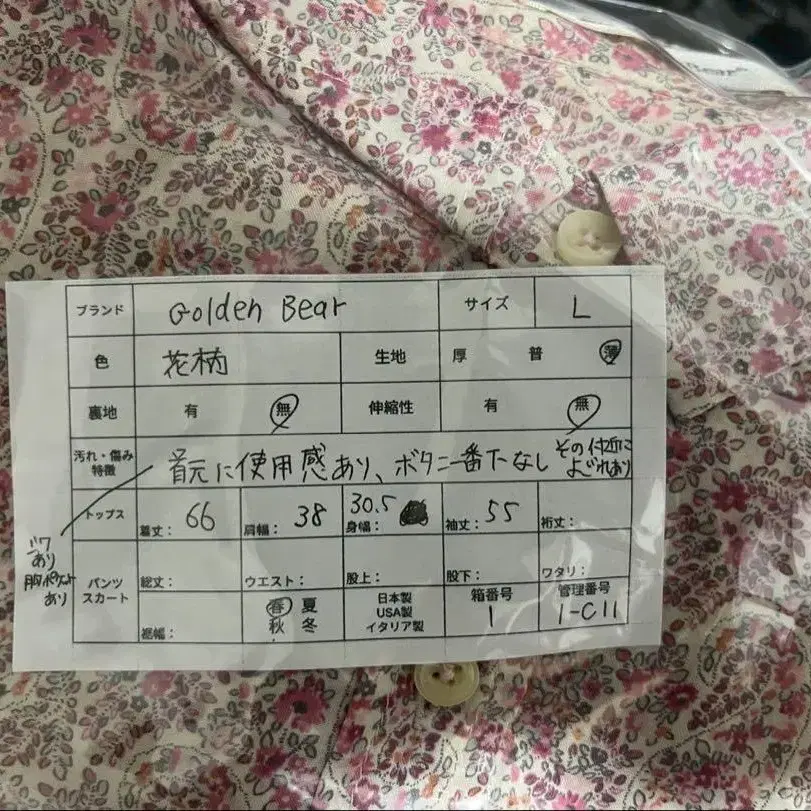 ブランド Golden Bear サイズ L
色 花柄 生地 厚 普 薄
裏地 有 無 伸縮性 有 無
汚れ・傷み 特徴 首元に使用感あり、ボタン一番下なし その付近に よごれあり
シワ あり 胸ポケット あり
トップス 着丈： 66 肩幅： 38 身幅： 30.5 袖丈： 55 裄丈：
パンツ スカート 総丈： ウエスト： 股上： 股下： ワタリ：
裾幅： 春 夏 秋 冬 日本製 USA製 イタリア製 箱番号 1 管理番号 1-C11